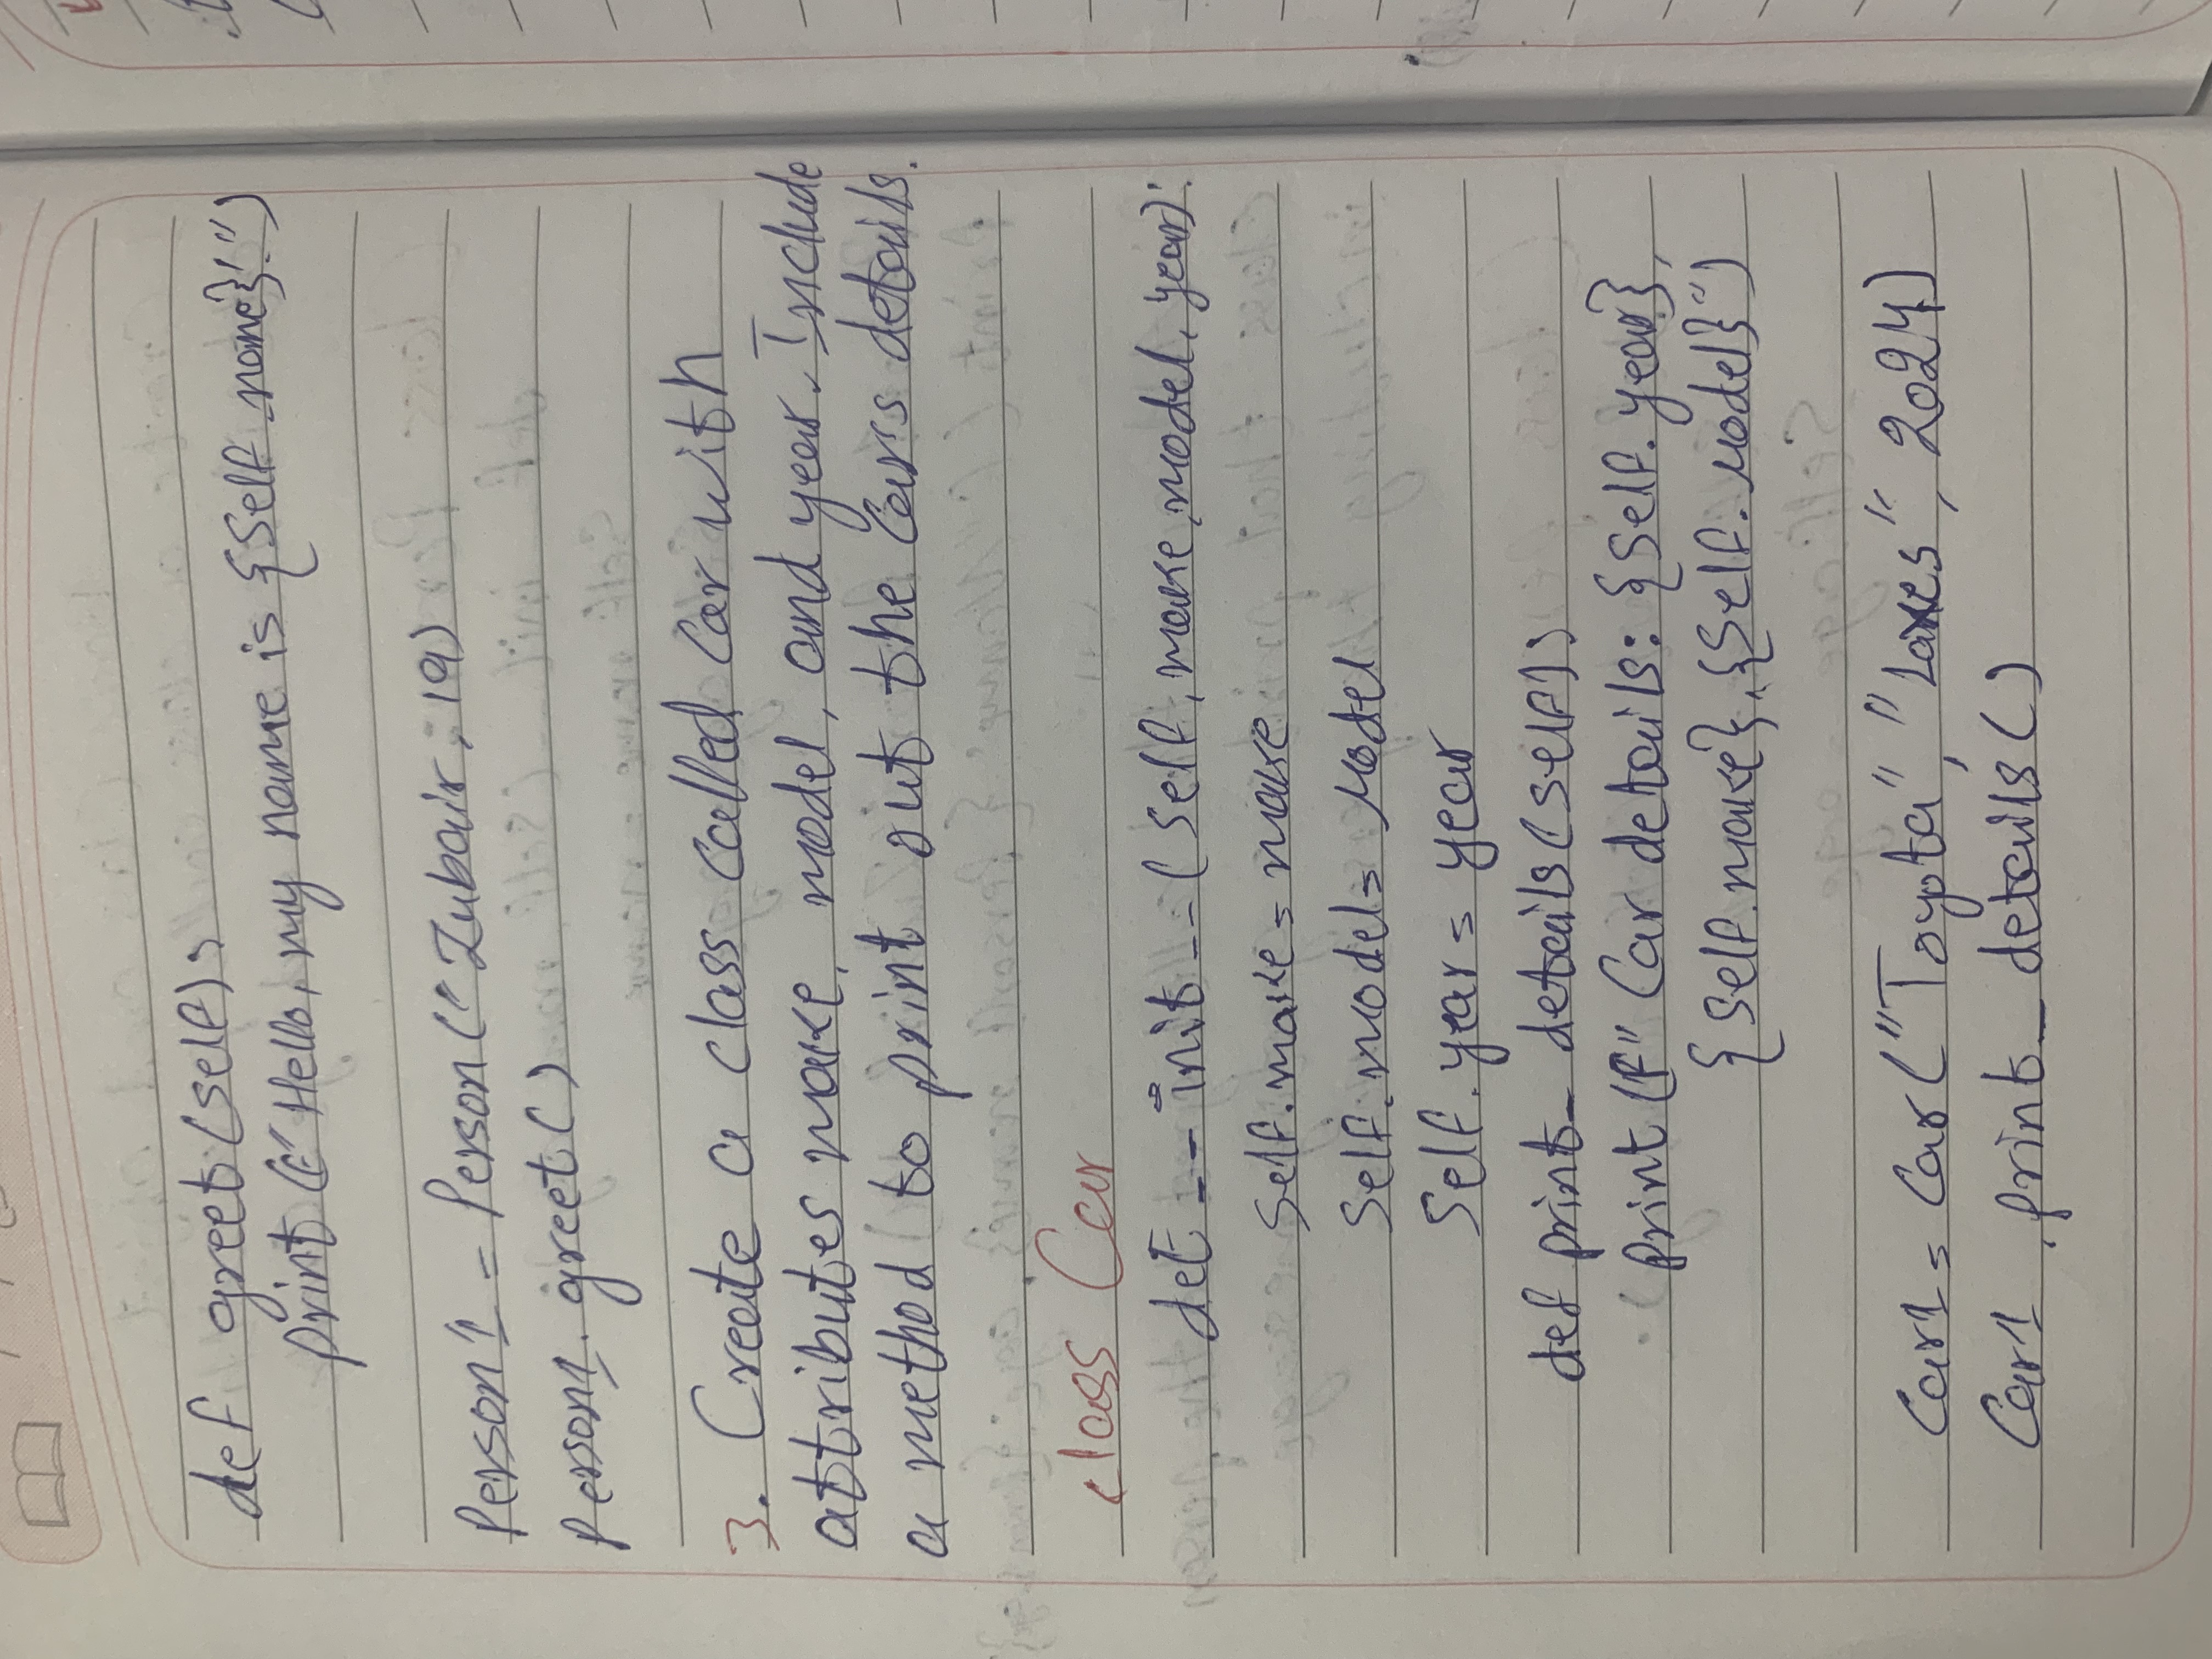 def greet(self):
print(f"Hello, my name is {Self.name}!")
Person1 = Person("Zubair, 19)
Person1.greet()
3. Create a class called Car with
attributes make, model, and year. Include
a method to print out the Car's details.
class Car
def __init__(Self, make, model, year):
Self.make = make
Self.model = Model
Self.year = year
def print_details(self):
print(f"Car details: {Self.year},
{Self.make}, {Self.Model}")
Car1 = Car("Toyota", "Laxes", 2024)
Car1.print_details()